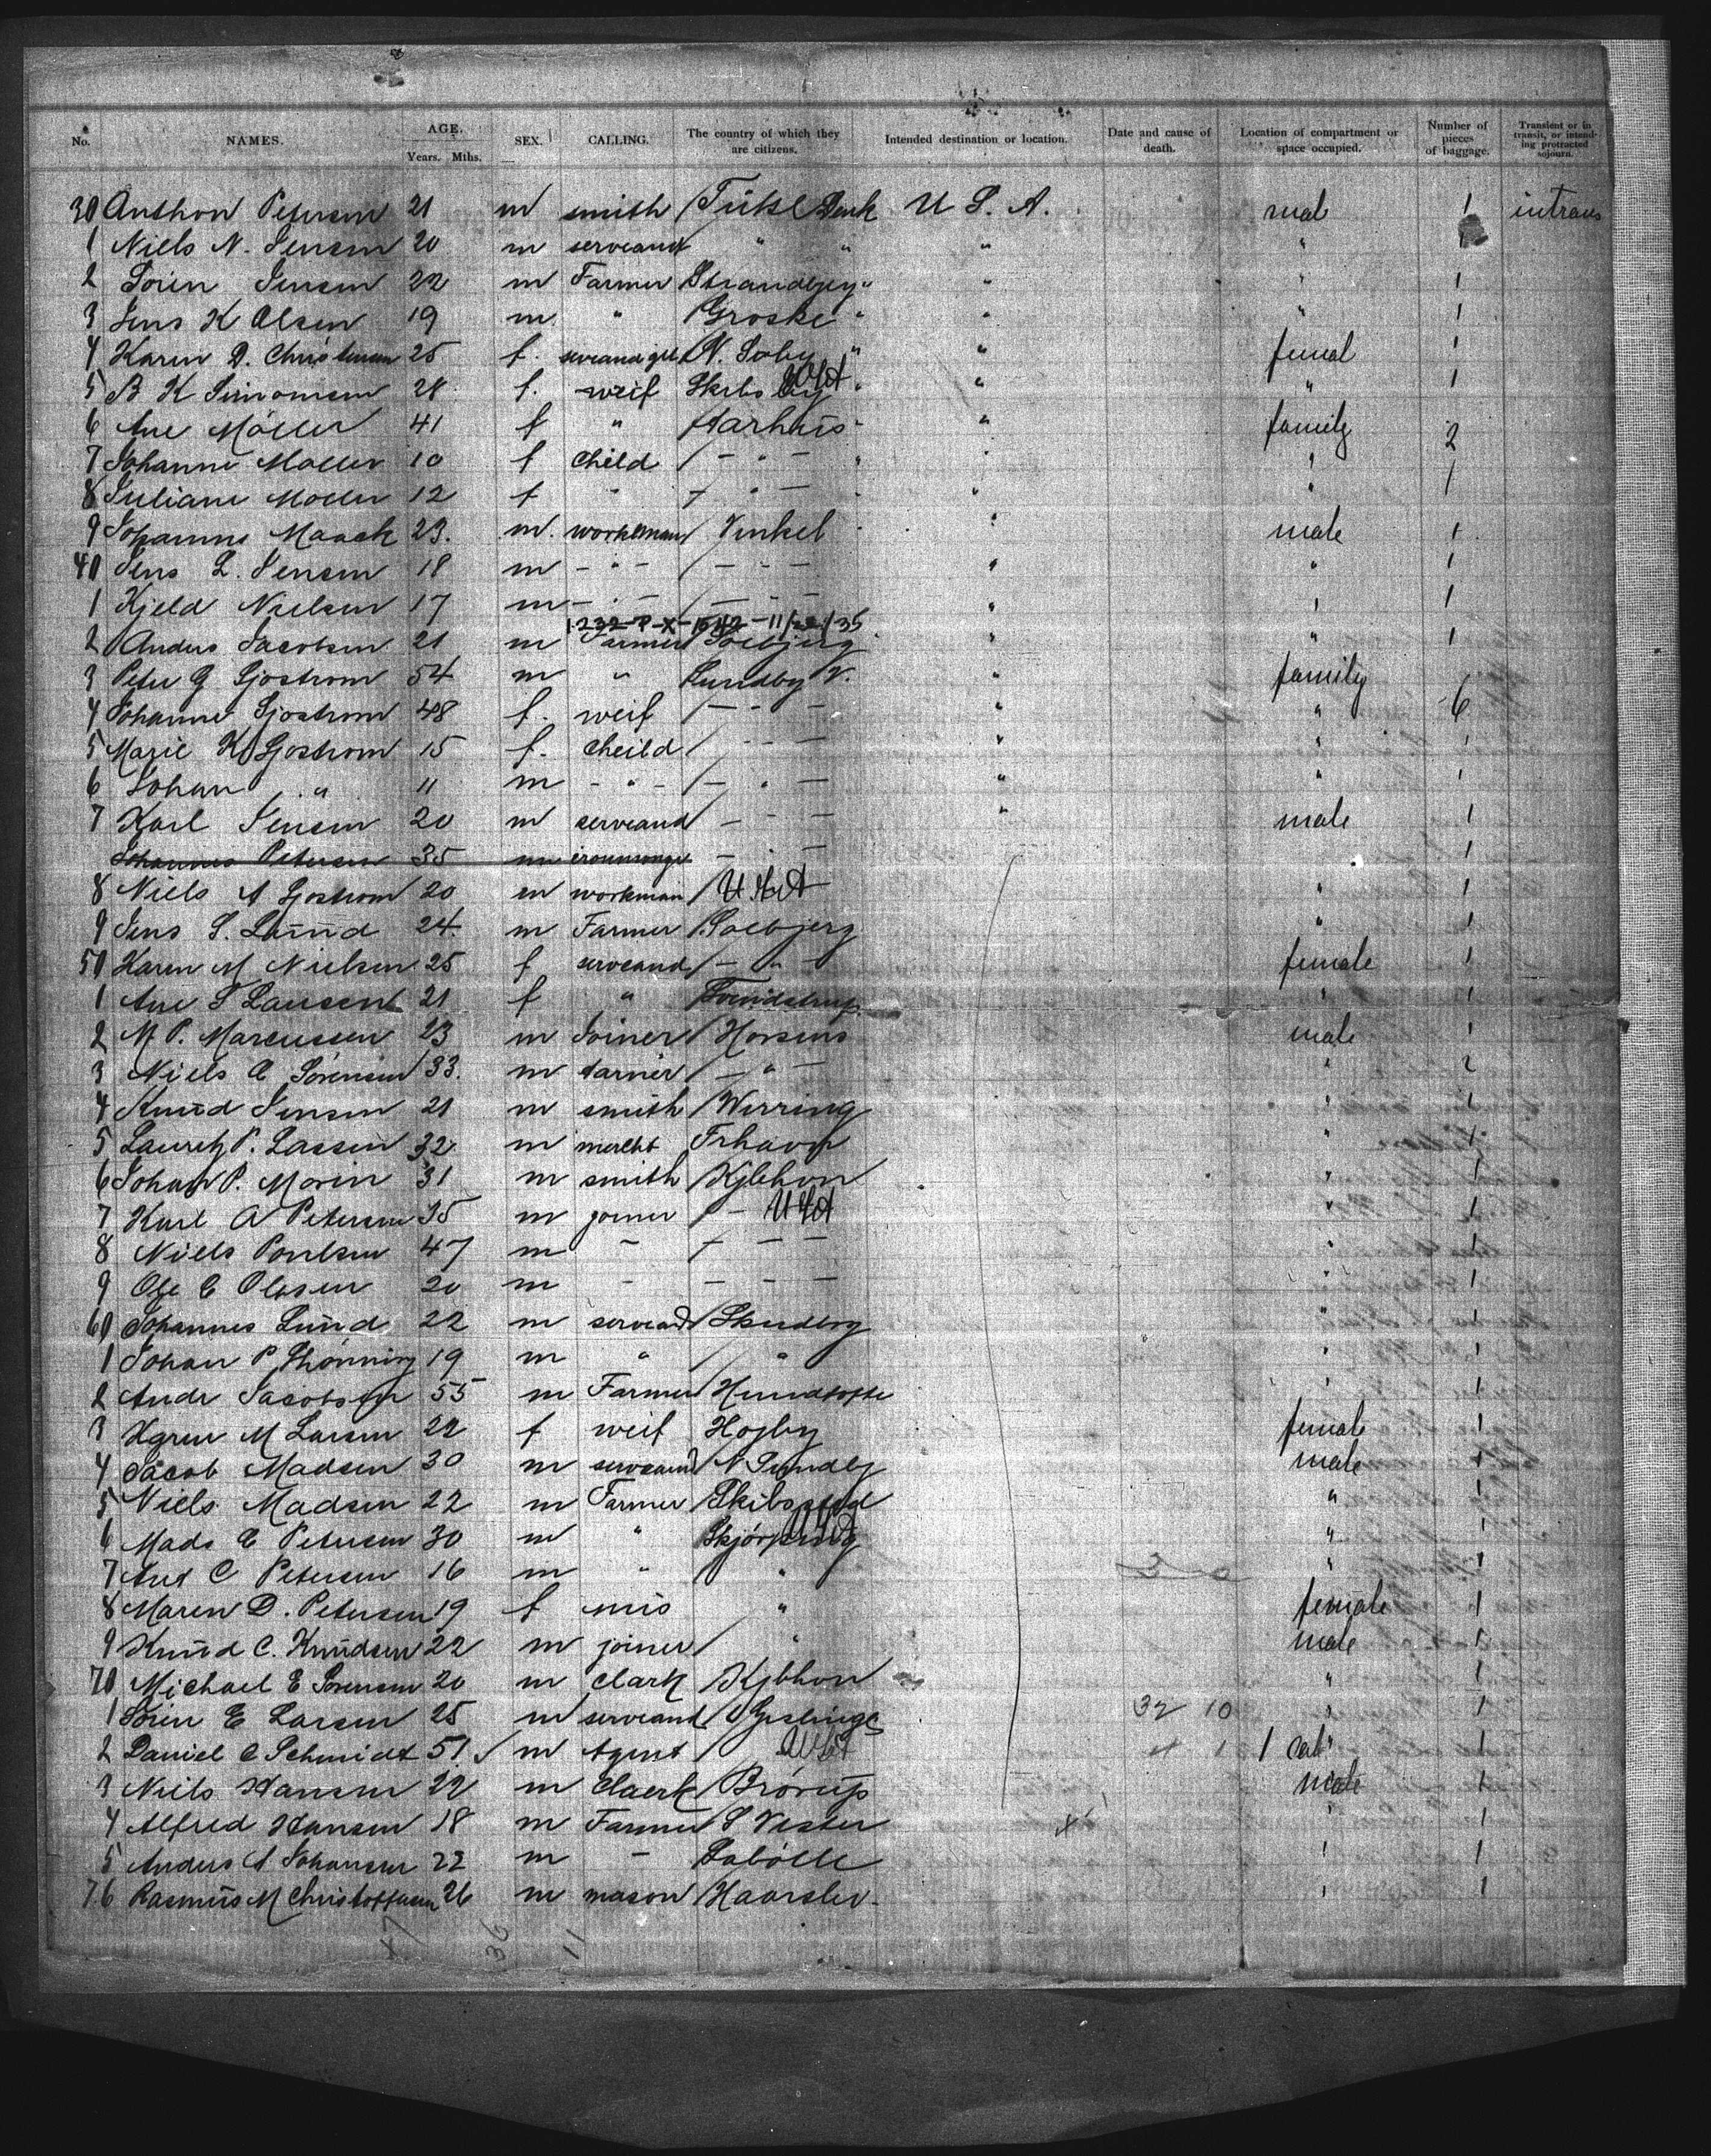 No. NAMES. AGE. Years. Mths. SEX. CALLING. The country of which they are citizens. Intended destination or location. Date and cause of death. Location of compartment or space occupied. Number of pieces of baggage. Transient or in transit, or intending protracted sojourn.
30 Anthon Petersen 21 m smith Denk U. S. A. mal 1 intrans
1 Niels N. Jensen 20 m serveand " " " "
2 Sörin Jensen 22 m Farmer Strandbey " " " 1
3 Jens K Olsen 19 m " Groske " " " 1
4 Karen D. Christensen 25 f. serveand gel N. Soby " " femal 1
5 B K Simonsen 28 f. weif " " " 1
6 Ane Möller 41 f " Aarhus " " family 2
7 Johanne Moller 10 f Child - " - " " 1
8 Juliane Moller 12 f " - " - " " 1
9 Johannes Maack 23. m. workman Vinkel " male 1
40 Jens L. Jensen 18 m - " - - - - " " 1
1 Kjeld Nielsen 17 m - " - - - - " " 1
1232-P-X-
2 Anders Jacobsen 21 m Farmer Solbjerg " " 1
3 Peter G Sjostrom 54 m " Lundby V. " family
4 Johanne Sjostrom 48 f. weif - - - " " 6
5 Marie K Sjostrom 15 f. Cheild - - - " "
6 Johan " 11 m - " - - " - " "
7 Karl Jensen 20 m serveand - - - " male 1
Johannes Petersen 35 m - - - 1
8 Niels A Sjostrom 20 m workman USA " 1
9 Jens S. Lund 24. m Farmer Solbjerg " 1
50 Karen M Nielsen 25 f serveand - " - female 1
1 Ane S Laursen 21 f " " 1
2 M P. Marcussen 23 m Joiner Horsens male 1
3 Niels C Sörensen 33. m tarner - " - " 2
4 Knud Jensen 21 m smith Werring " 1
5 Lauretz P. Lassen 32 m mercht Frhavn " 1
6 Johan P. Morin 31 m smith Kjbhvn " 1
7 Karl A Petersen 35 m joiner - USA " 1
8 Niels Poulsen 47 m - - - - " 1
9 Ole C Olesen 20 m - - - - " 1
60 Johannes Lund 22 m serveand " 1
1 Johan P Thönning 19 m " " " 1
2 Andr Jacobsen 55 m Farmer Hundtofte " 1
3 Karen M Larsen 22 f weif Hojby female 1
4 Jacob Madsen 30 m serveand N Lundby male 1
5 Niels Madsen 22 m Farmer Skibsted " 1
6 Mads E Petersen 30 m " Skjörping " 1
7 C Petersen 16 m " " " 1
8 Maren D. Petersen 19 f mis " female 1
9 Knud C. Knudsen 22 m joiner " male 1
70 Michael E Sörensen 20 m Clark Kjbhvn " 1
1 Sörin E Larsen 25 m serveand Gislinge 32 10 " 1
2 Daniel C Schmidt 51 m Agent USA 1 " 1
3 Niels Hansen 22 m Claerk Brörup male 1
4 Alfred Hansen 18 m Farmer S Vester " 1
5 Anders A Johansen 22 m - " 1
76 Rasmus M Christoffersen 26 m mason Haarslev. " 1
47 36 11